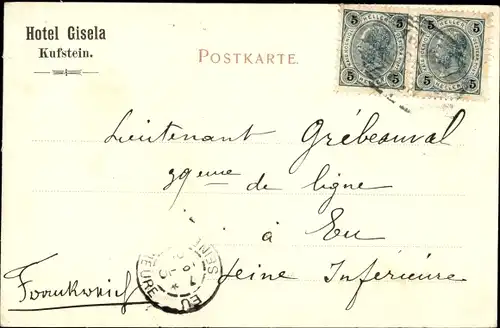 Hotel Gisela
Kufstein.
POSTKARTE.
5 HELLER 5
5 HELLER 5
5 HELLER 5
5 HELLER 5
Lieutenant Grébeauval
39eme de ligne
à Eu
Seine Inférieure
Frankreich
EU
SEINE